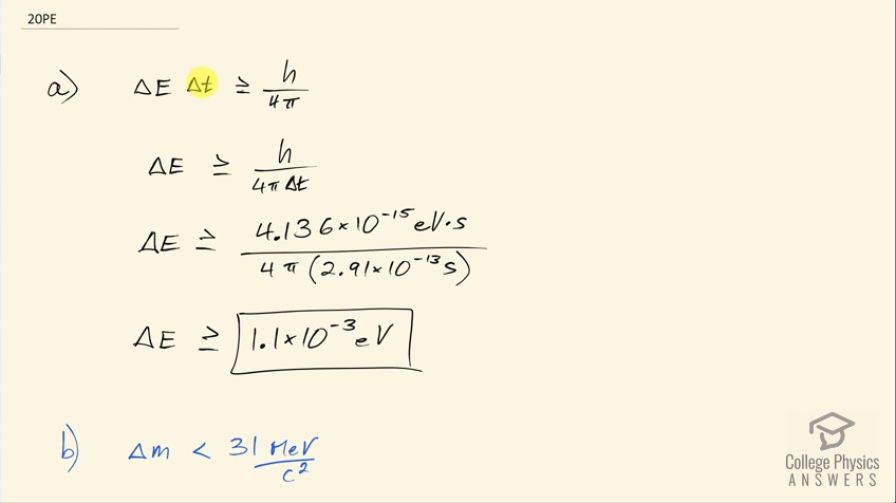 20PE
a) ΔE Δt ≥ h/4π
ΔE ≥ h/4πΔt
ΔE ≥ 4.136×10⁻¹⁵ eV·s / 4π(2.91×10⁻¹³ s)
ΔE ≥ 1.1×10⁻³ eV
b) Δm < 31 MeV/c²
College Physics
ANSWERS